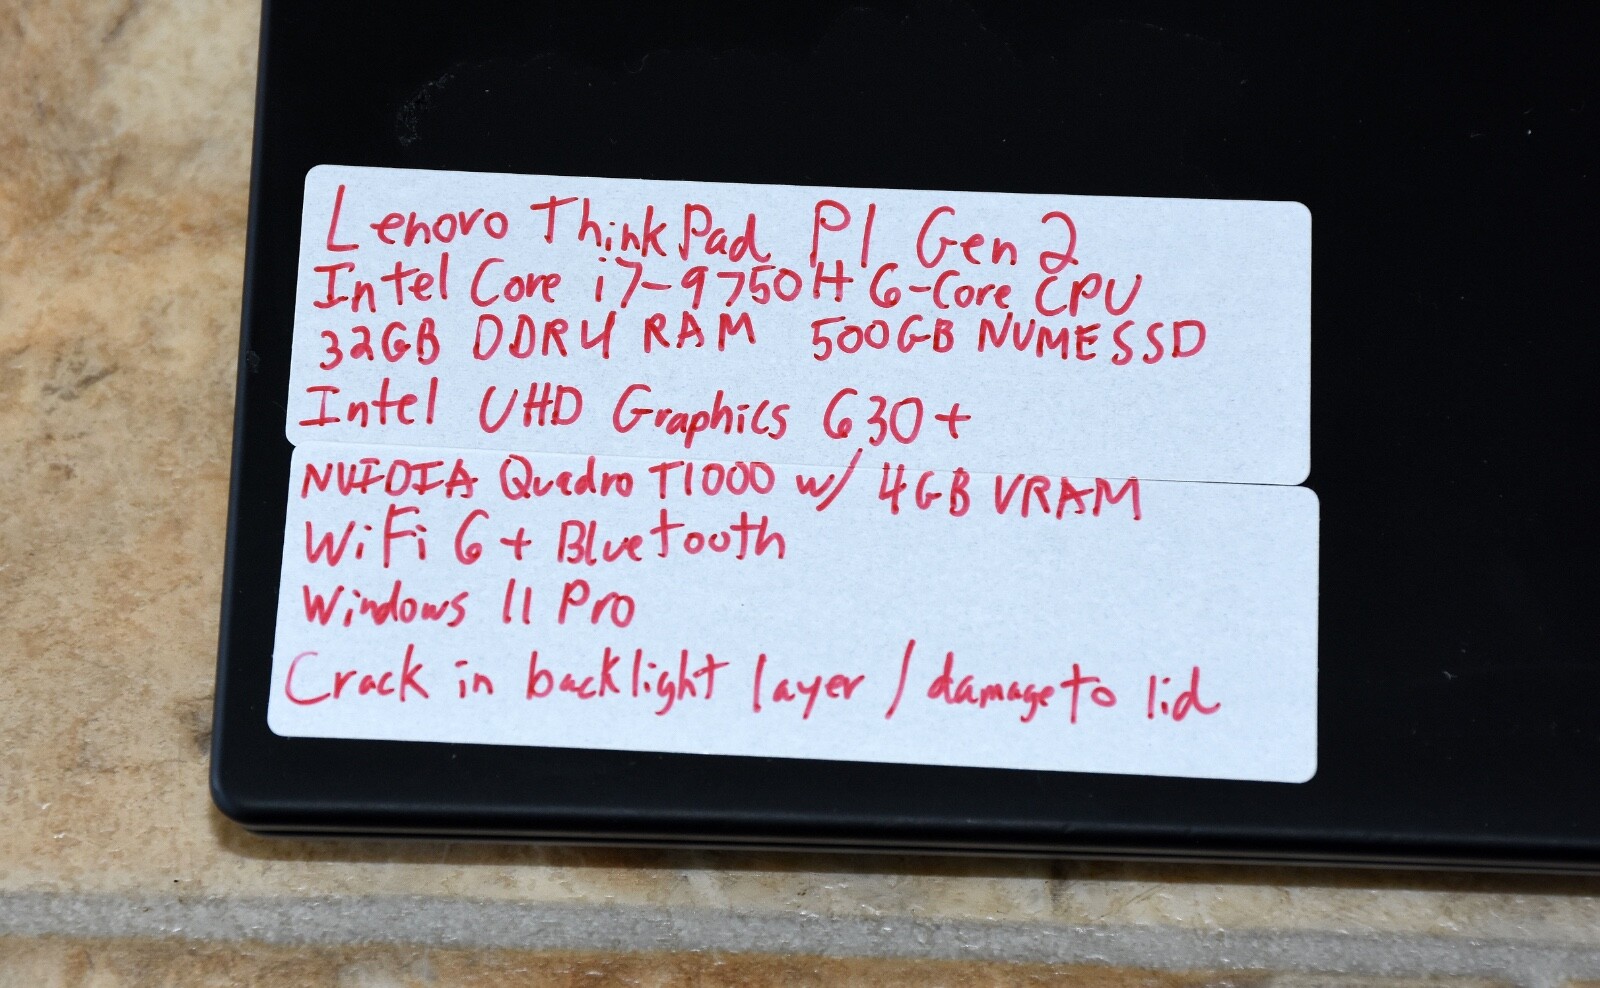 Lenovo ThinkPad P1 Gen 2
Intel Core i7-9750H 6-Core CPU
32GB DDR4 RAM 500GB NVME SSD
Intel UHD Graphics 630+
NVIDIA Quadro T1000 w/ 4GB VRAM
WiFi 6 + Bluetooth
Windows 11 Pro
Crack in backlight layer / damage to lid